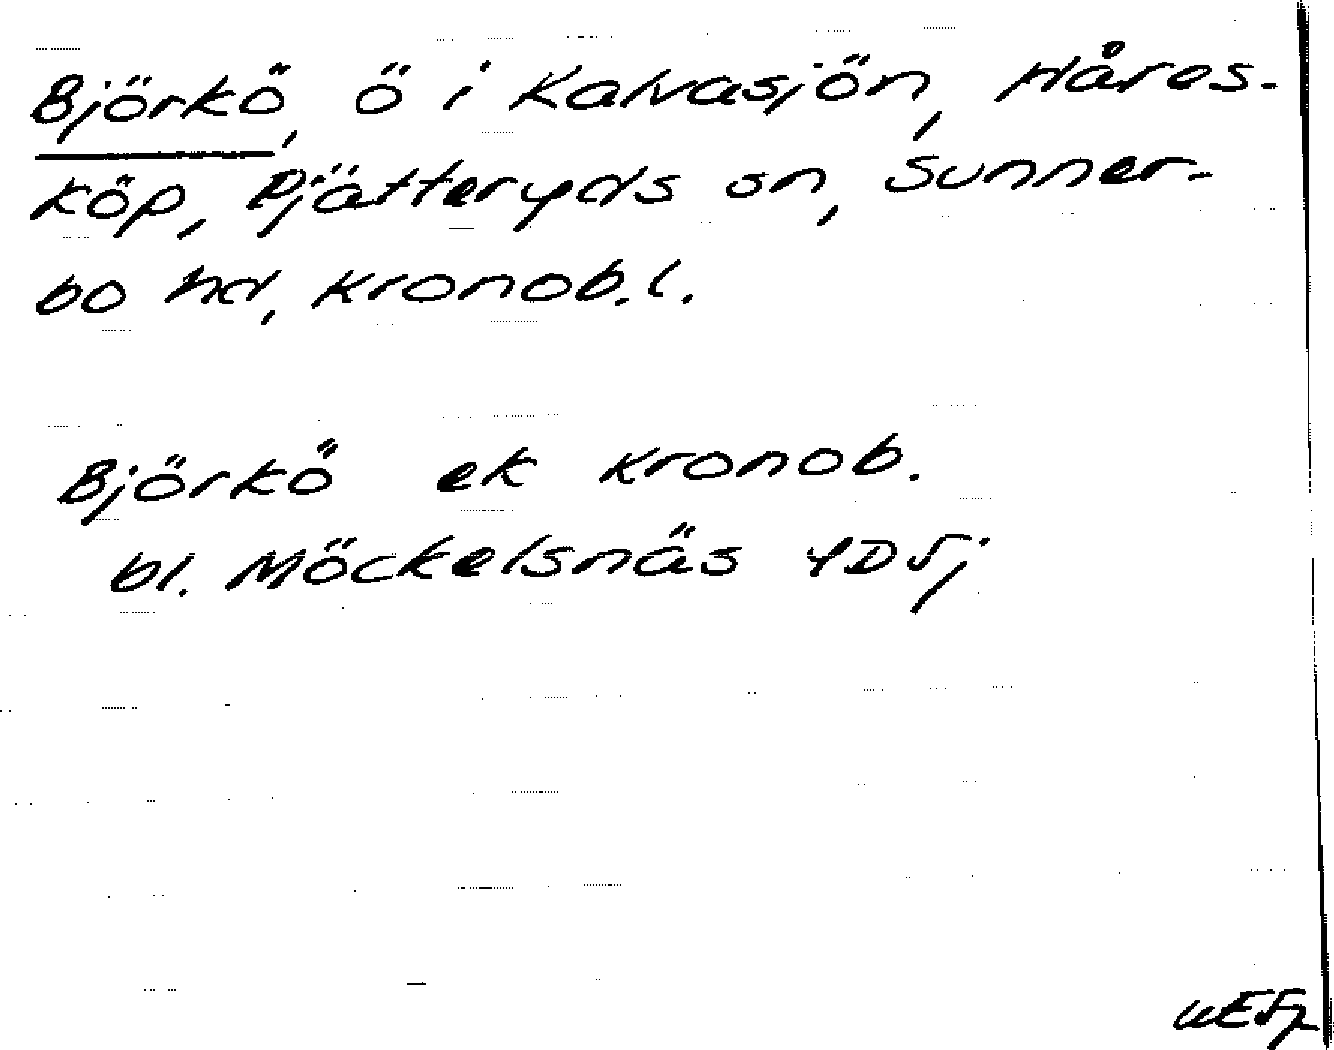 Björkö, ö i Kalvasjön, Håres-
köp, Pjätteryds sn, Sunner-
bo hd, Kronob.l.
Björkö ek Kronob.
bl. Möckelsnäs 4D5j